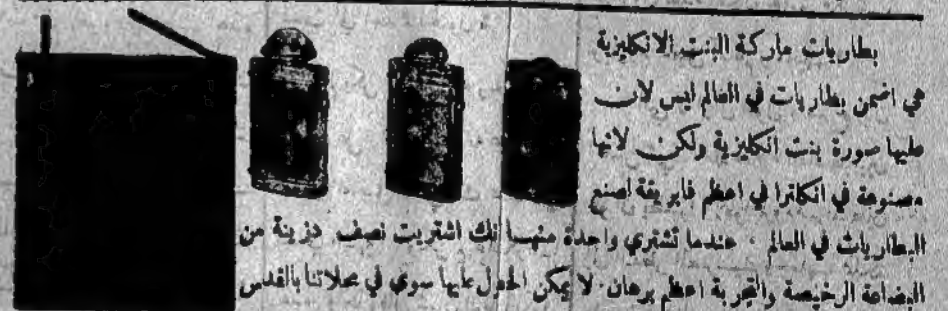 بطاريات ماركة البنت الانكليزية
هي اضمن بطاريات في العالم ليس لان
عليها صورة بنت انكليزية ولكن لانها
مصنوعة في انكلترا في اعظم فابريقة لصنع
البطاريات في العالم ٠ عندما تشتري واحدة منها كأنك اشتريت نصف دزينة من
البضاعة الرخيصة والتجربة اعظم برهان ٠ لا يمكن الحصول عليها سوى في محلاتنا بالقدس